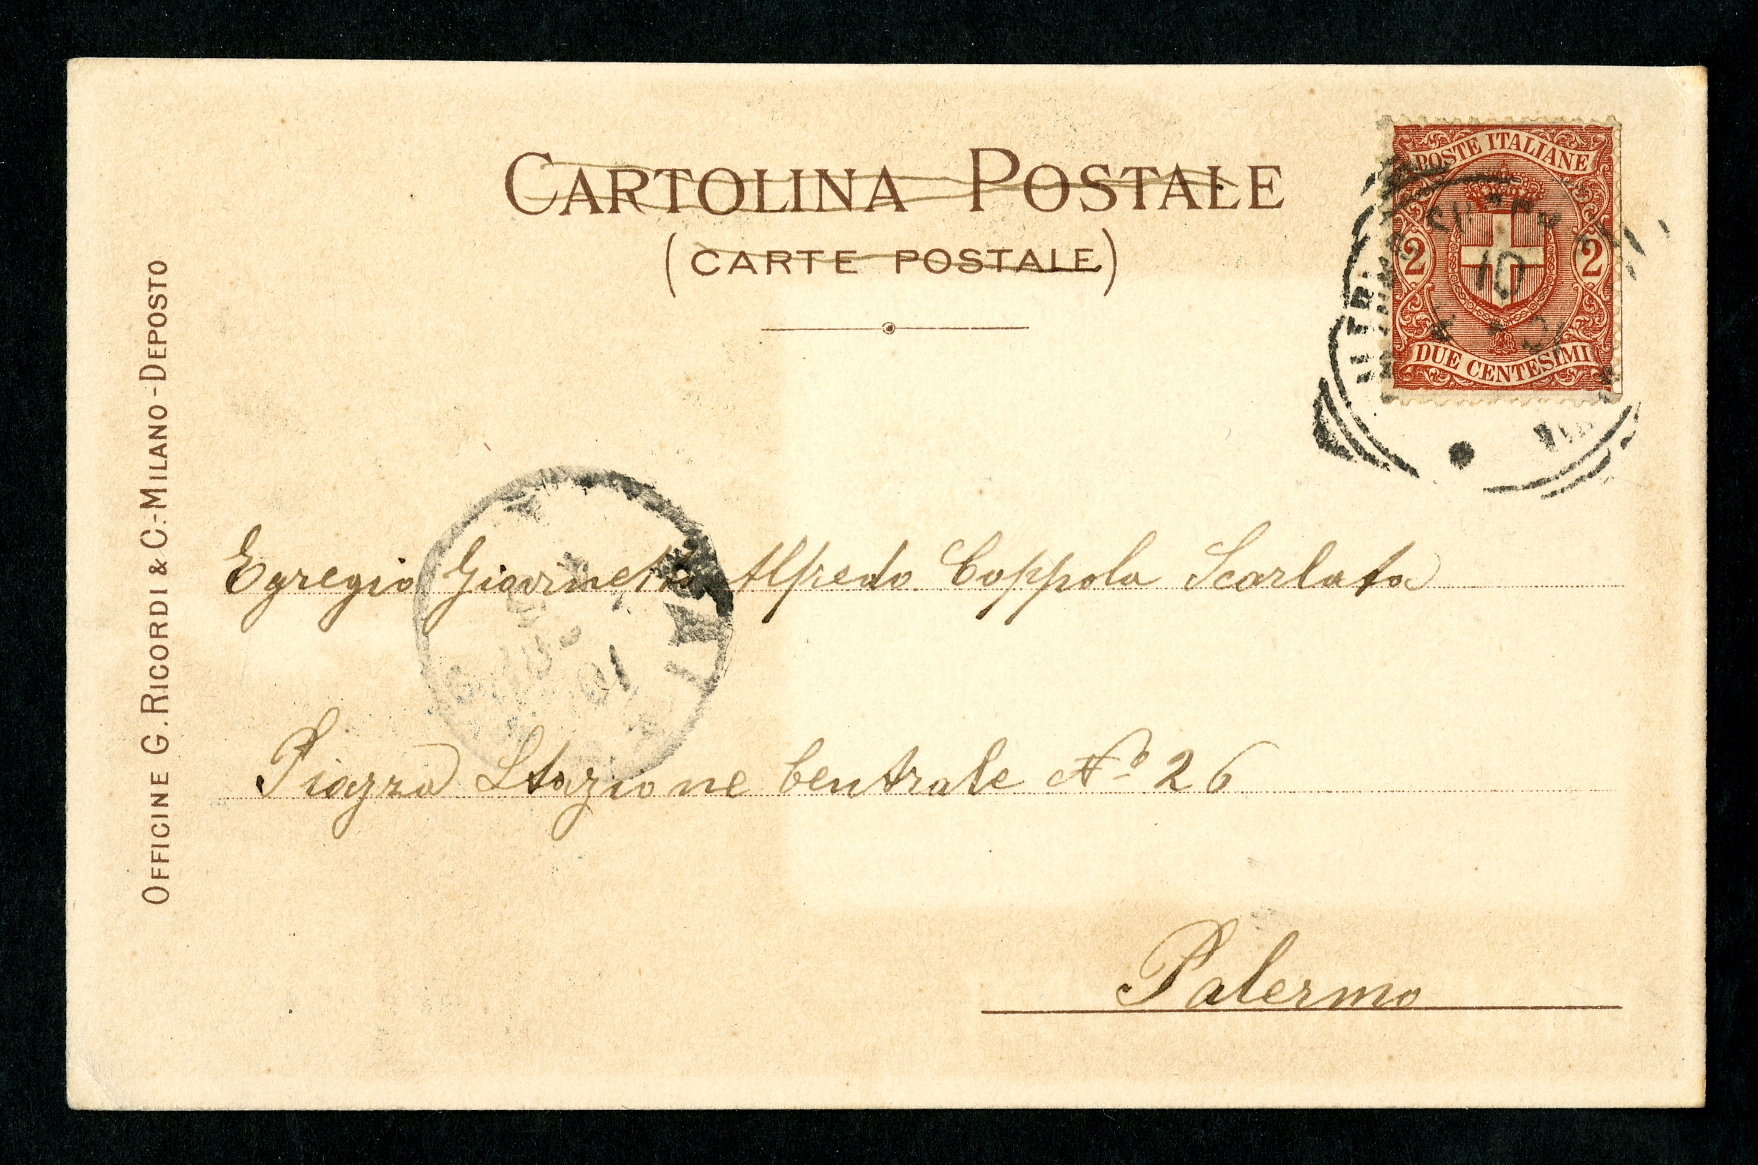 CARTOLINA POSTALE
(CARTE POSTALE)
POSTE ITALIANE
2 2
10
DUE CENTESIMI
OFFICINE G. RICORDI & C.-MILANO-DEPOSTO
Egregio Giovinetto Alfredo Coppola Scarlata
Piazza Stazione Centrale No 26
Palermo